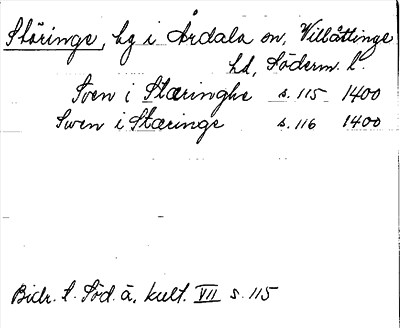 Stäringe, by i Årdala sn, Villåttinge
hd, Söderm. l.
Sven i Stæringhe s. 115 1400
Swen i Stæringe s. 116 1400
Bidr. t. Söd. ä. kult. VII s. 115